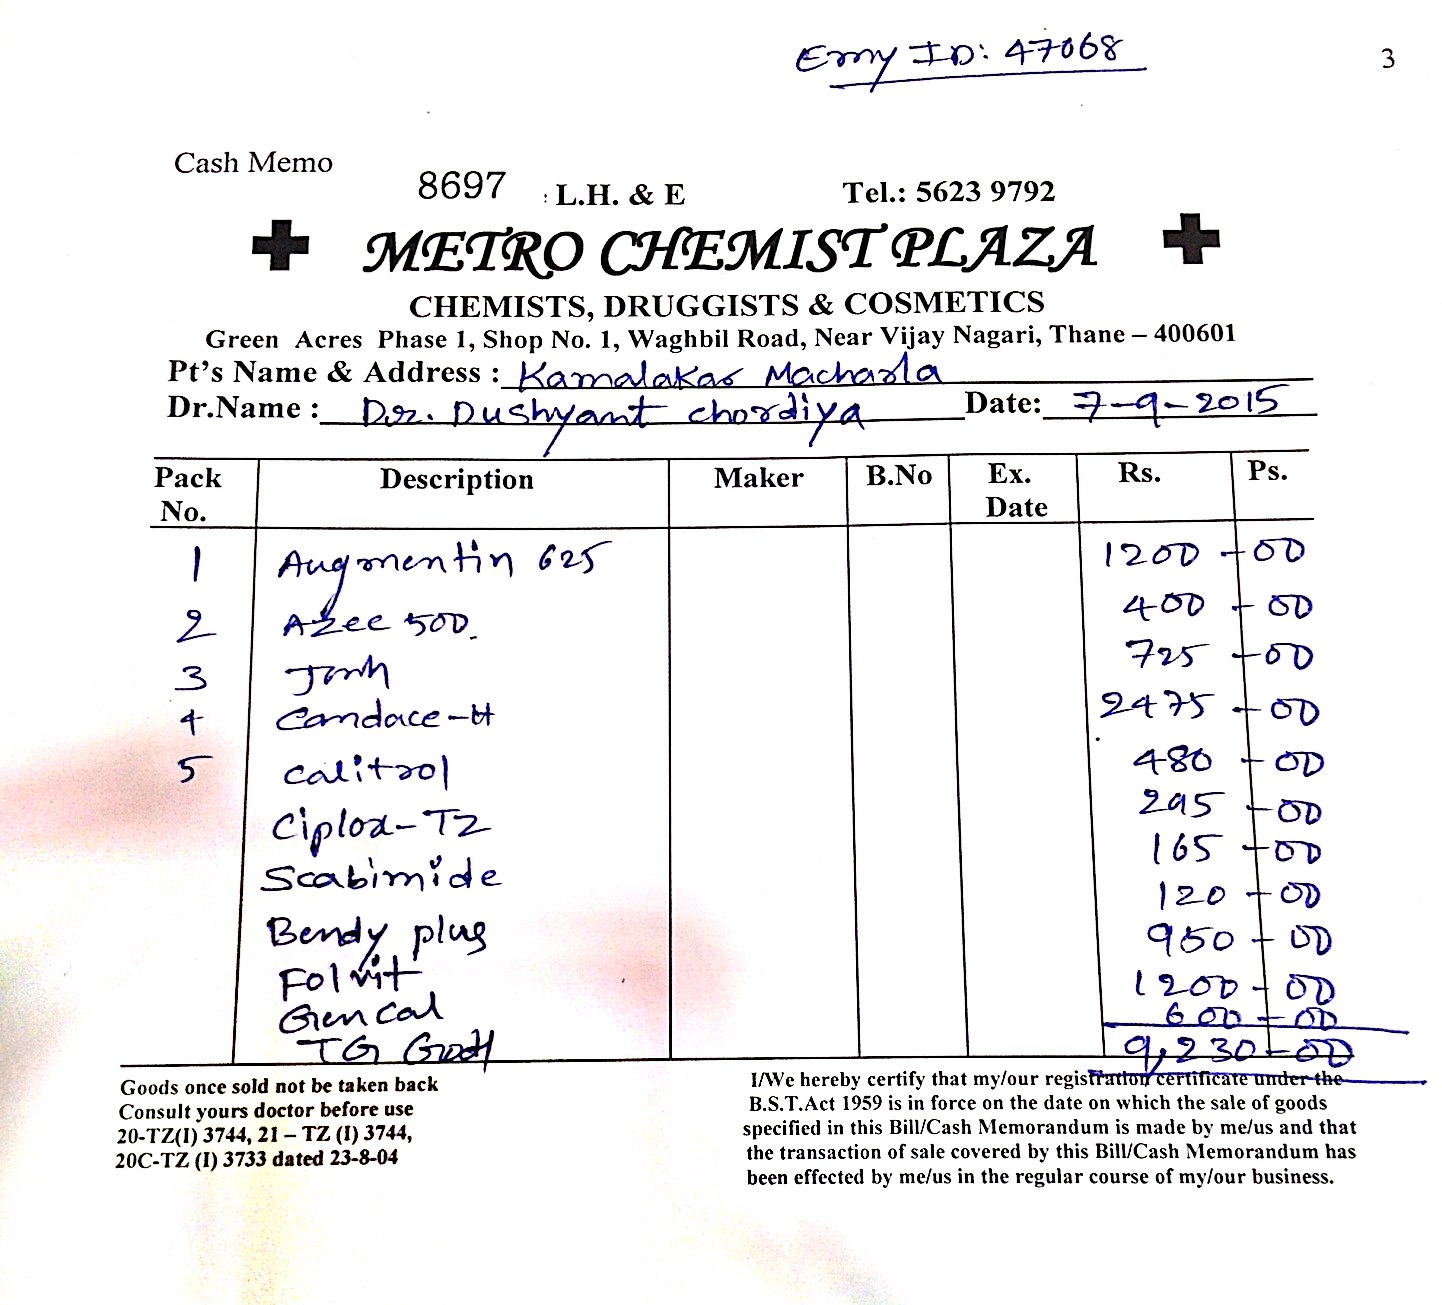 Emy ID: 47068
3
Cash Memo
8697 : L.H. & E Tel.: 5623 9792
METRO CHEMIST PLAZA
CHEMISTS, DRUGGISTS & COSMETICS
Green Acres Phase 1, Shop No. 1, Waghbil Road, Near Vijay Nagari, Thane – 400601
Pt's Name & Address : Kamalakar Macharla
Dr.Name : Dr. Dushyant Chordiya Date: 7-9-2015
Pack No. Description Maker B.No Ex. Date Rs. Ps.
1 Augmentin 625 1200-00
2 Azee 500. 400-00
3 725-00
4 Candace-H 2475-00
5 Calitrol 480-00
Ciplox-TZ 295-00
Scabimide 165-00
Bendy plus 120-00
Folvit 950-00
Gencal 1200-00
TG 600-00
9,230-00
Goods once sold not be taken back
Consult yours doctor before use
20-TZ(I) 3744, 21 – TZ (I) 3744,
20C-TZ (I) 3733 dated 23-8-04
I/We hereby certify that my/our registration certificate under the
B.S.T.Act 1959 is in force on the date on which the sale of goods
specified in this Bill/Cash Memorandum is made by me/us and that
the transaction of sale covered by this Bill/Cash Memorandum has
been effected by me/us in the regular course of my/our business.